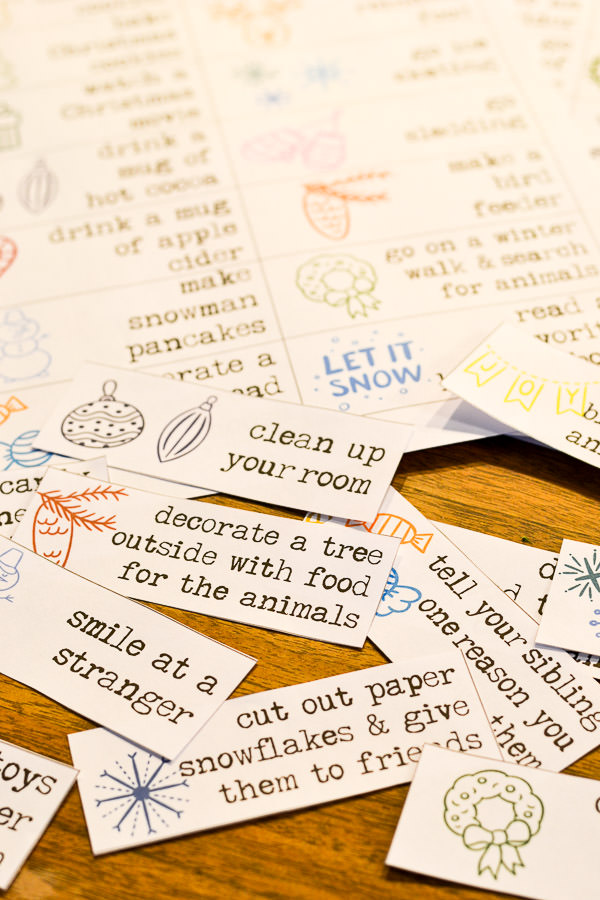 Christmas
watch a
Christmas
movie
drink a
mug of
hot cocoa
drink a mug
of apple
cider
make
snowman
pancakes
go ice
skating
go
sledding
make a
bird
feeder
go on a winter
walk & search
for animals
LET IT
SNOW
read a
JOY
clean up
your room
decorate a tree
outside with food
for the animals
smile at a
stranger
cut out paper
snowflakes & give
them to friends
tell your sibling
one reason you
them
toys